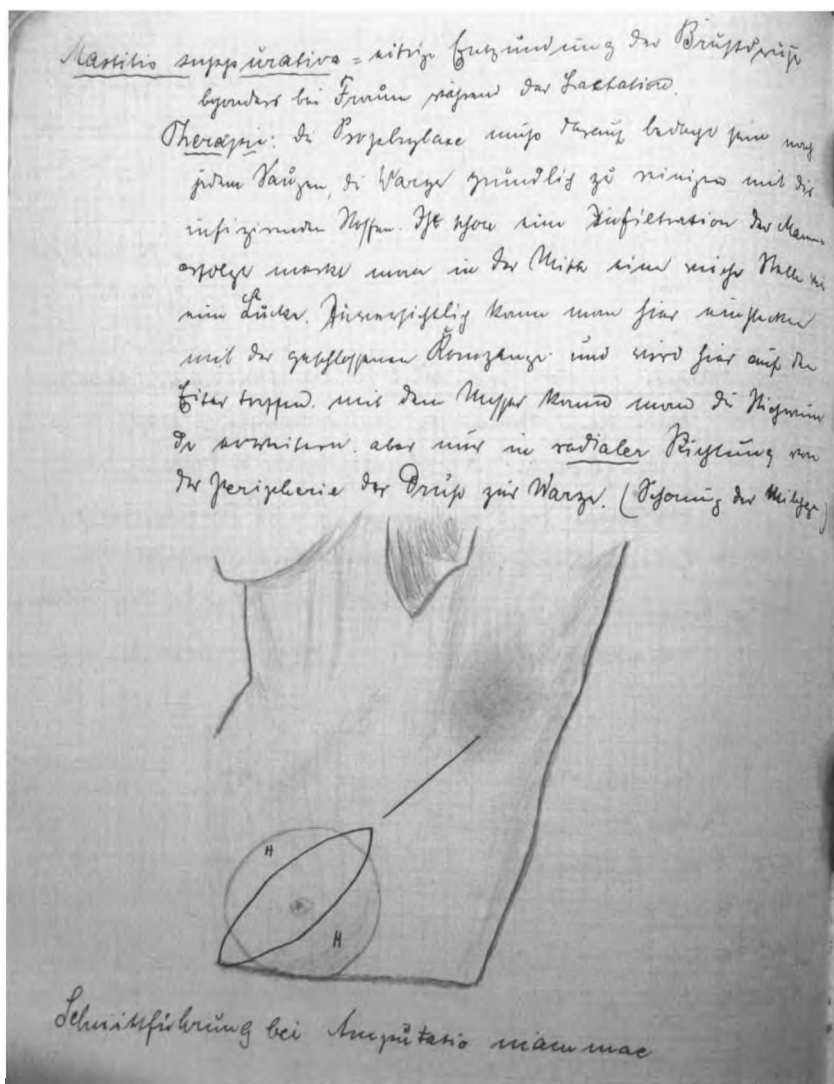 Mastitis suppurativa = eitrige Entzündung der Brustdrüse
besonders bei Frauen während der Lactation.
Therapie: die Prophylaxe muss darauf bedacht sein nach
jedem Saugen, die Warze gründlich zu reinigen mit
infizirenden Stoffen. Ist schon eine Infiltration der Mamma
erfolgt merkt man in der Mitte eine weiche Stelle wie
eine Lücke. Zuversichtlich kann man hier einstechen
mit der geschlossenen Kornzange und wird hier auf den
Eiter treffen. mit dem Messer kann man die Stichwun
de erweitern. aber nur in radialer Richtung von
der Peripherie der Drüse zur Warze. (Schonung der Milchgg)
H
H
Schnittführung bei Amputatio mammae